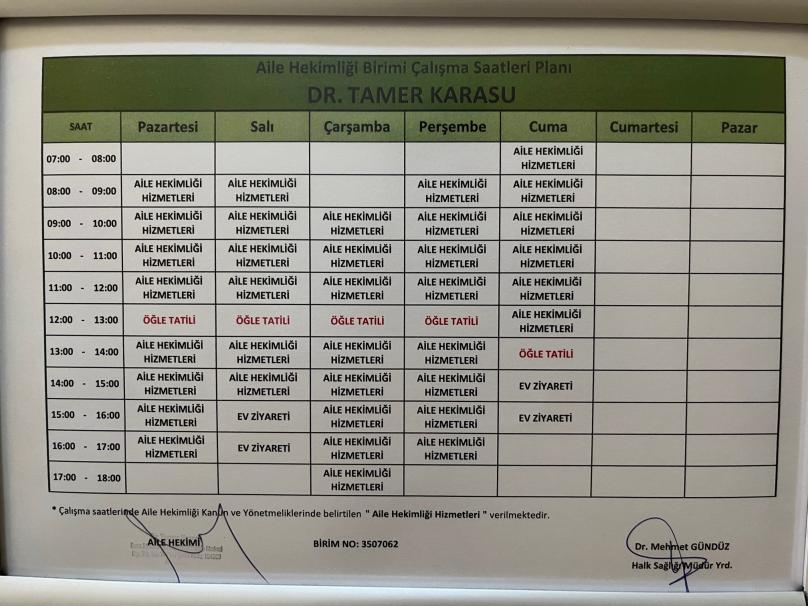 Aile Hekimliği Birimi Çalışma Saatleri Planı
DR. TAMER KARASU
SAAT Pazartesi Salı Çarşamba Perşembe Cuma Cumartesi Pazar
07:00 - 08:00 AİLE HEKİMLİĞİ HİZMETLERİ
08:00 - 09:00 AİLE HEKİMLİĞİ HİZMETLERİ AİLE HEKİMLİĞİ HİZMETLERİ AİLE HEKİMLİĞİ HİZMETLERİ AİLE HEKİMLİĞİ HİZMETLERİ
09:00 - 10:00 AİLE HEKİMLİĞİ HİZMETLERİ AİLE HEKİMLİĞİ HİZMETLERİ AİLE HEKİMLİĞİ HİZMETLERİ AİLE HEKİMLİĞİ HİZMETLERİ AİLE HEKİMLİĞİ HİZMETLERİ
10:00 - 11:00 AİLE HEKİMLİĞİ HİZMETLERİ AİLE HEKİMLİĞİ HİZMETLERİ AİLE HEKİMLİĞİ HİZMETLERİ AİLE HEKİMLİĞİ HİZMETLERİ AİLE HEKİMLİĞİ HİZMETLERİ
11:00 - 12:00 AİLE HEKİMLİĞİ HİZMETLERİ AİLE HEKİMLİĞİ HİZMETLERİ AİLE HEKİMLİĞİ HİZMETLERİ AİLE HEKİMLİĞİ HİZMETLERİ AİLE HEKİMLİĞİ HİZMETLERİ
12:00 - 13:00 ÖĞLE TATİLİ ÖĞLE TATİLİ ÖĞLE TATİLİ ÖĞLE TATİLİ AİLE HEKİMLİĞİ HİZMETLERİ
13:00 - 14:00 AİLE HEKİMLİĞİ HİZMETLERİ AİLE HEKİMLİĞİ HİZMETLERİ AİLE HEKİMLİĞİ HİZMETLERİ AİLE HEKİMLİĞİ HİZMETLERİ ÖĞLE TATİLİ
14:00 - 15:00 AİLE HEKİMLİĞİ HİZMETLERİ AİLE HEKİMLİĞİ HİZMETLERİ AİLE HEKİMLİĞİ HİZMETLERİ AİLE HEKİMLİĞİ HİZMETLERİ EV ZİYARETİ
15:00 - 16:00 AİLE HEKİMLİĞİ HİZMETLERİ EV ZİYARETİ AİLE HEKİMLİĞİ HİZMETLERİ AİLE HEKİMLİĞİ HİZMETLERİ EV ZİYARETİ
16:00 - 17:00 AİLE HEKİMLİĞİ HİZMETLERİ EV ZİYARETİ AİLE HEKİMLİĞİ HİZMETLERİ AİLE HEKİMLİĞİ HİZMETLERİ
17:00 - 18:00 AİLE HEKİMLİĞİ HİZMETLERİ
* Çalışma saatlerinde Aile Hekimliği Kanun ve Yönetmeliklerinde belirtilen " Aile Hekimliği Hizmetleri " verilmektedir.
AİLE HEKİMİ BİRİM NO: 3507062 Dr. Mehmet GÜNDÜZ
Halk Sağlığı Müdür Yrd.